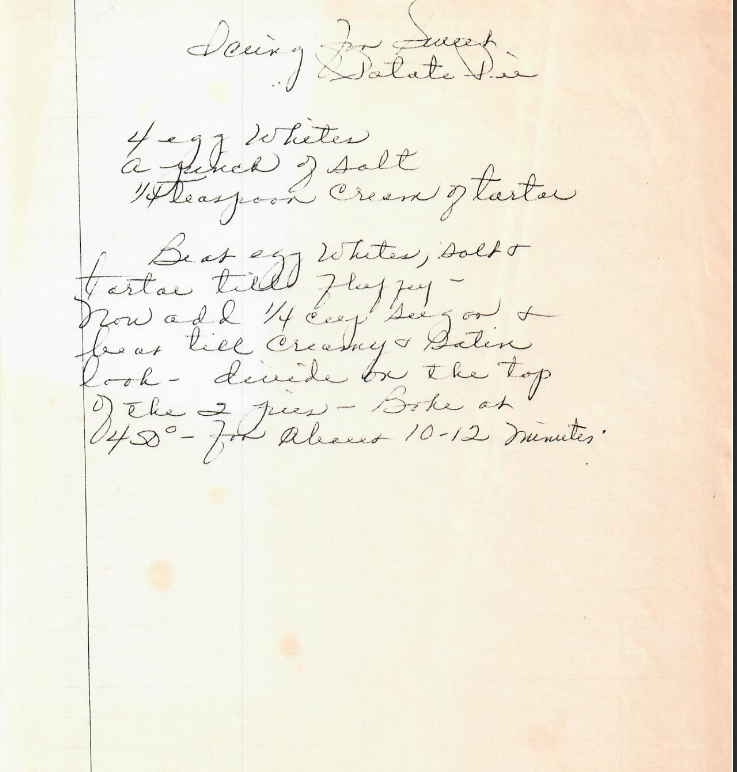 Icing For Sweet
Potate Pie
4 egg Whites
a pinch of salt
1/4 teaspoon Cream of tartar
Beat egg Whites, salt &
tartar till fluffy -
Now add 1/4 cup sugar &
beat till Creamy & Satin
look - divide on the top
of the 2 pies - Bake at
450° - for About 10-12 Minutes.